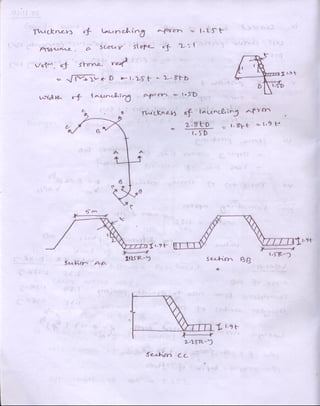 Thickness of launching apron = 1.85t
Assume a scour slope of 2:1
Volm. of stone reqd
= √(1²+2²) × D × 1.25t = 2.8tD
Width of launching apron = 1.5D
Thickness of launching apron
= 2.8tD / 1.5D = 1.86t = 1.9t
t
1.9t
D
1.5D
A
A
B
B
C
5m
t
1.9t
Section AA
1.9t
1.5R-y
Section BB
1.9t
2.25R-y
Section CC